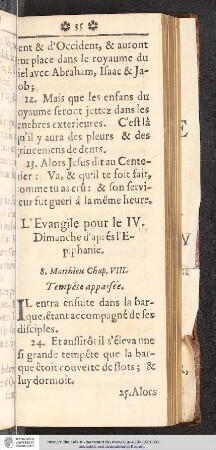 ✿ 35 ✿
ent & d'Occident, & auront
eur place dans le royaume du
iel avec Abraham, Isaac & Ja-
ob;
12. Mais que les enfans du
oyaume seront jettez dans les
enebres exterieures. C'est là
qu'il y aura des pleurs & des
grincemens de dents.
13. Alors Jesus dit au Cente-
ier: Va, & qu'il te soit fait,
comme tu as cru: & son servi-
eur fut gueri à la même heure.
L'Evangile pour le IV.
Dimanche d'aprés l'E-
piphanie.
8. Matthieu Chap. VIII.
Tempête appaisée.
IL entra ensuite dans la bar-
que, étant accompagné de ses
disciples.
24. Et aussitôt il s'éleva une
si grande tempête que la bar-
que étoit couverte de flots; &
luy dormoit.
25. Alors